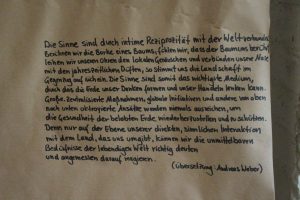 Die Sinne sind durch intime Reziprozität mit der Welt verbunden.
Berühren wir die Borke eines Baums, fühlen wir, dass der Baum uns berührt.
leihen wir unsere Ohren den lokalen Geräuschen und verbünden unsere Nase
mit den jahreszeitlichen Düften, so stimmt uns die Landschaft im
Gegenzug auf sich ein. Die Sinne sind somit das wichtigste Medium,
durch das die Erde unser Denken formen und unser Handeln lenken kann.
Große zentralisierte Maßnahmen, globale Initiativen und andere von oben
nach unten oktroyierte Ansätze werden niemals ausreichen, um
die Gesundheit der belebten Erde wiederherzustellen und zu schützen.
Denn nur auf der Ebene unserer direkten, sinnlichen Interaktion
mit dem Land, das uns umgibt, können wir die unmittelbaren
Bedürfnisse der lebendigen Welt richtig deuten
und angemessen darauf reagieren.
(Übersetzung: Andreas Weber)